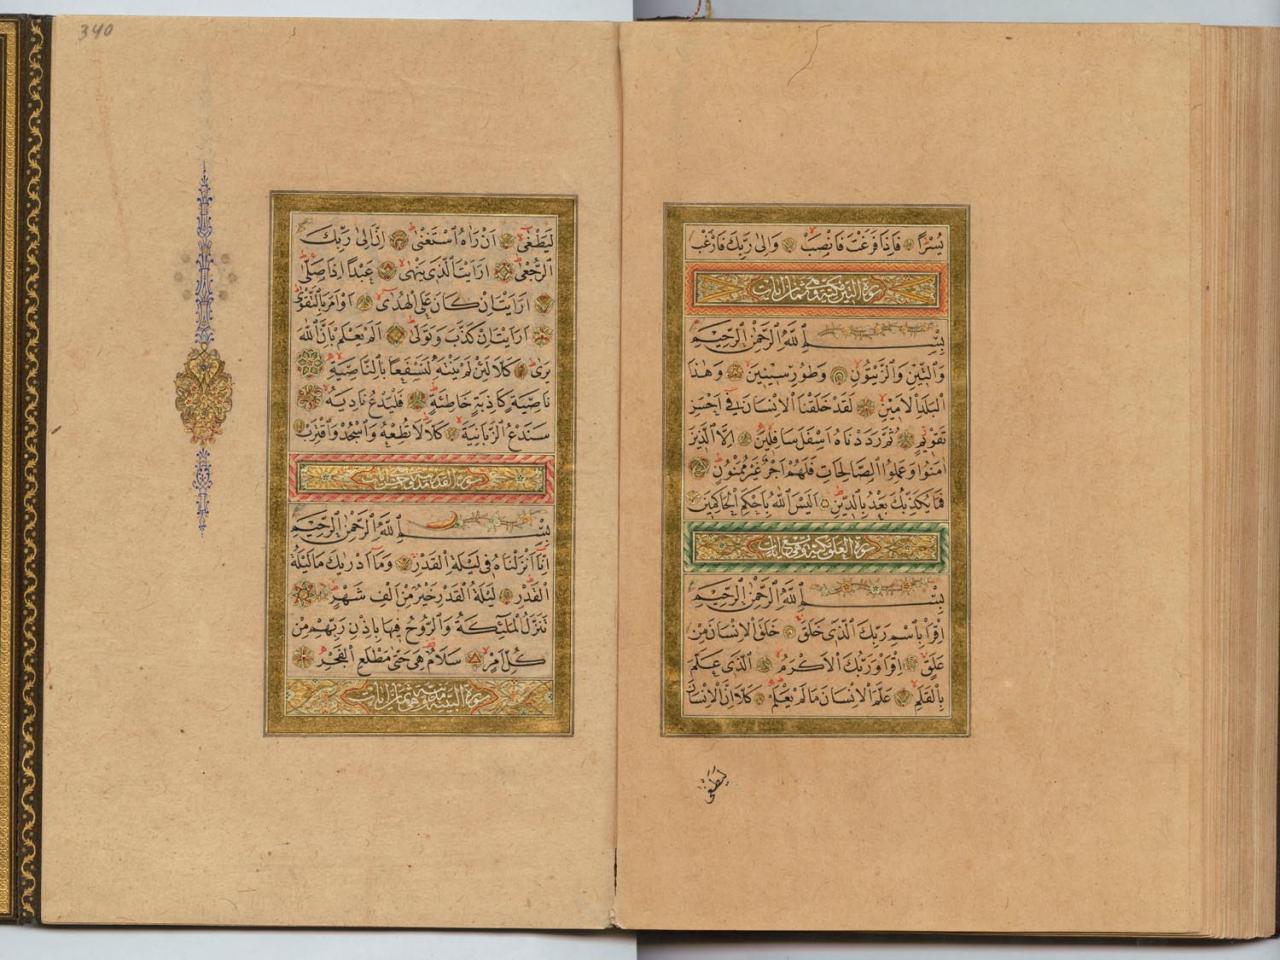 يُسْرًا فَاِذَا فَرَغْتَ فَانْصَبْ وَاِلٰى رَبِّكَ فَارْغَبْ
سورة التين مكية وهي ثمان ايات
بِسْمِ اللّٰهِ الرَّحْمٰنِ الرَّحِيمِ
وَالتِّينِ وَالزَّيْتُونِ وَطُورِ سِينِينَ وَهٰذَا
الْبَلَدِ الْاَمِينِ لَقَدْ خَلَقْنَا الْاِنْسَانَ فِي اَحْسَنِ
تَقْوِيمٍ ثُمَّ رَدَدْنَاهُ اَسْفَلَ سَافِلِينَ اِلَّا الَّذِينَ
اٰمَنُوا وَعَمِلُوا الصَّالِحَاتِ فَلَهُمْ اَجْرٌ غَيْرُ مَمْنُونٍ
فَمَا يُكَذِّبُكَ بَعْدُ بِالدِّينِ اَلَيْسَ اللّٰهُ بِاَحْكَمِ الْحَاكِمِينَ
سورة العلق مكية وهي تسع ايات
بِسْمِ اللّٰهِ الرَّحْمٰنِ الرَّحِيمِ
اِقْرَاْ بِاسْمِ رَبِّكَ الَّذِي خَلَقَ خَلَقَ الْاِنْسَانَ مِنْ
عَلَقٍ اِقْرَاْ وَرَبُّكَ الْاَكْرَمُ الَّذِي عَلَّمَ
بِالْقَلَمِ عَلَّمَ الْاِنْسَانَ مَا لَمْ يَعْلَمْ كَلَّا اِنَّ الْاِنْسَانَ
لَيَطْغٰى
340
لَيَطْغٰى اَنْ رَاٰهُ اسْتَغْنٰى اِنَّ اِلٰى رَبِّكَ
الرُّجْعٰى اَرَاَيْتَ الَّذِي يَنْهٰى عَبْدًا اِذَا صَلّٰى
اَرَاَيْتَ اِنْ كَانَ عَلَى الْهُدٰى اَوْ اَمَرَ بِالتَّقْوٰى
اَرَاَيْتَ اِنْ كَذَّبَ وَتَوَلّٰى اَلَمْ يَعْلَمْ بِاَنَّ اللّٰهَ
يَرٰى كَلَّا لَئِنْ لَمْ يَنْتَهِ لَنَسْفَعًا بِالنَّاصِيَةِ
نَاصِيَةٍ كَاذِبَةٍ خَاطِئَةٍ فَلْيَدْعُ نَادِيَهُ
سَنَدْعُ الزَّبَانِيَةَ كَلَّا لَا تُطِعْهُ وَاسْجُدْ وَاقْتَرِبْ
سورة القدر مدنية وهي خمس ايات
بِسْمِ اللّٰهِ الرَّحْمٰنِ الرَّحِيمِ
اِنَّا اَنْزَلْنَاهُ فِي لَيْلَةِ الْقَدْرِ وَمَا اَدْرٰيكَ مَا لَيْلَةُ
الْقَدْرِ لَيْلَةُ الْقَدْرِ خَيْرٌ مِنْ اَلْفِ شَهْرٍ
تَنَزَّلُ الْمَلٰئِكَةُ وَالرُّوحُ فِيهَا بِاِذْنِ رَبِّهِمْ مِنْ
كُلِّ اَمْرٍ سَلَامٌ هِيَ حَتّٰى مَطْلَعِ الْفَجْرِ
سورة البينة مدنية وهي ثمان ايات